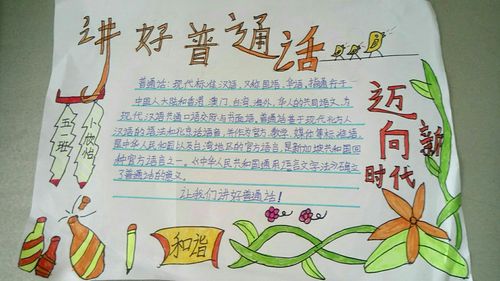 讲好普通话
普通话:现代标准汉语,又称国语,华语,指通行于
中国人大陆和香港,澳门,台湾,海外,华人的共同语文,为
现代汉语共通口语交际与书面语,普通话基于现代北方人
汉语的语法和北京话语音,并作为官方,教学,媒体等标准语,
是中华人民和国以及台湾地区的官方语言,是新加坡共和国四
种官方语言之一。《中华人民共和国通用语言文字法》确立
了普通话的意义。
让我们讲好普通话!
五一班
小欣怡
迈向新时代
和谐